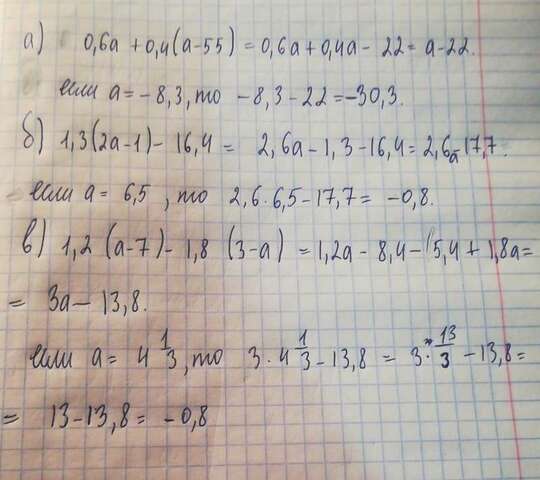 а) 0,6a + 0,4(a-55) = 0,6a + 0,4a - 22 = a-22.
если a = -8,3, то -8,3-22 = -30,3.
б) 1,3(2a-1) - 16,4 = 2,6a - 1,3 - 16,4 = 2,6a-17,7.
если a = 6,5, то 2,6·6,5-17,7 = -0,8.
в) 1,2(a-7) - 1,8(3-a) = 1,2a - 8,4 - 5,4 + 1,8a =
= 3a - 13,8.
если a = 4 1/3, то 3·4 1/3 - 13,8 = 3·13/3 - 13,8 =
= 13-13,8 = -0,8